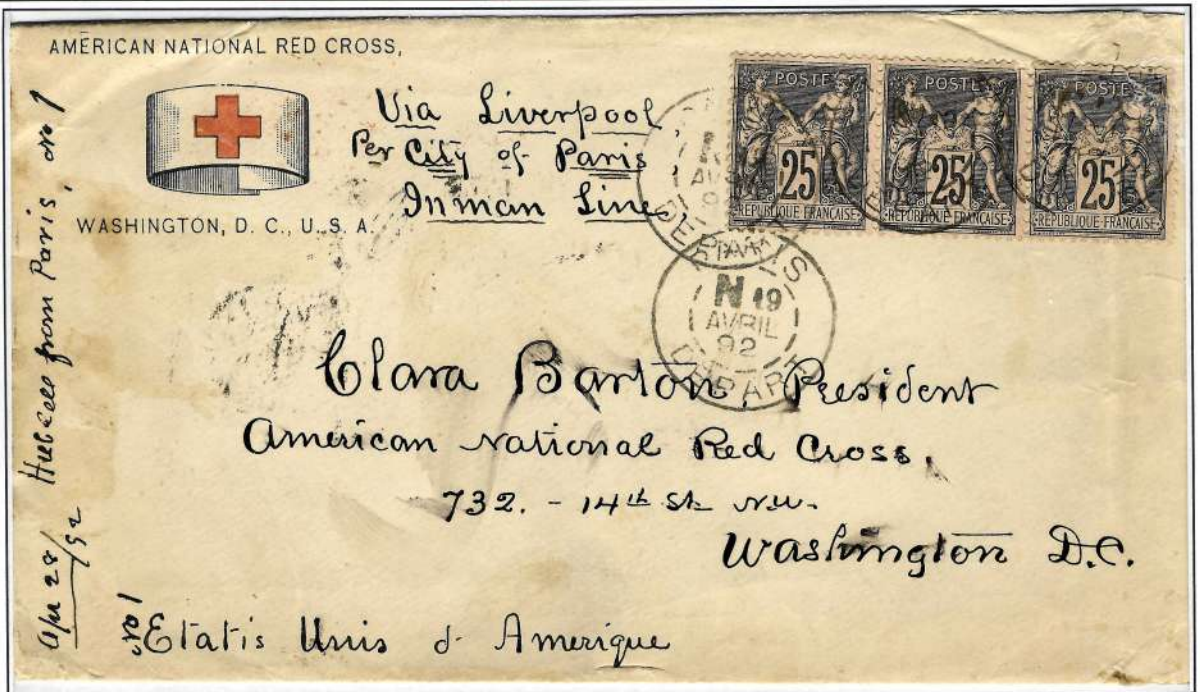 AMERICAN NATIONAL RED CROSS,
WASHINGTON, D. C., U. S. A.
Via Liverpool,
Per City of Paris
Inman Line
POSTE
25
REPUBLIQUE FRANÇAISE
POSTE
25
REPUBLIQUE FRANÇAISE
POSTE
25
REPUBLIQUE FRANÇAISE
N 19
AVRIL
92
DEPART
Clara Barton, President
American National Red Cross,
732. - 14th St. N.W.
Washington D.C.
Etatis Unis d Amerique
No 1
Apr 28/92 Hubbell from Paris, No 1